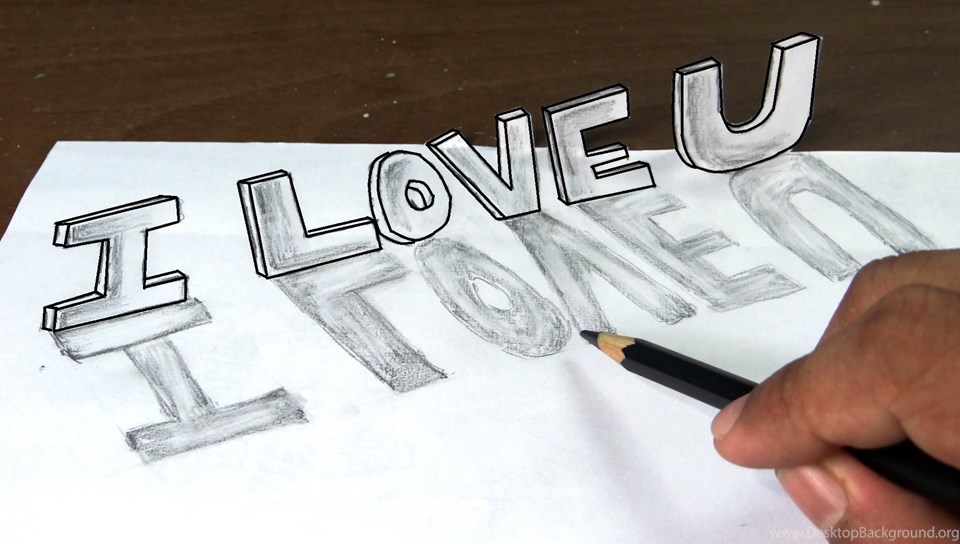 I LOVE U
www.DesktopBackground.org